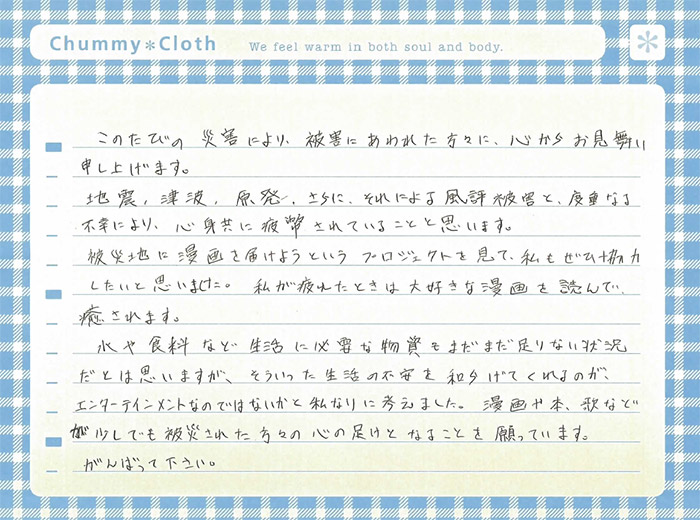 Chummy*Cloth We feel warm in both soul and body.
このたびの 災害により、被害にあわれた方々に、心からお見舞い
申し上げます。
地震，津波，原発，さらに、それによる風評被害と、度重なる
不幸により、心身共に疲幣されていることと思います。
被災地に漫画を届けようというプロジェクトを見て、私もぜひ協力
したいと思いました。私が疲れたときは大好きな漫画を読んで、
癒されます。
水や食料など生活に必要な物資もまだまだ足りない状況
だとは思いますが、そういった生活の不安を和らげてくれるのが、
エンターテインメントなのではないかと私なりに考えました。漫画や本、歌など
が少しでも被災された方々の心の足けとなることを願っています。
がんばって下さい。